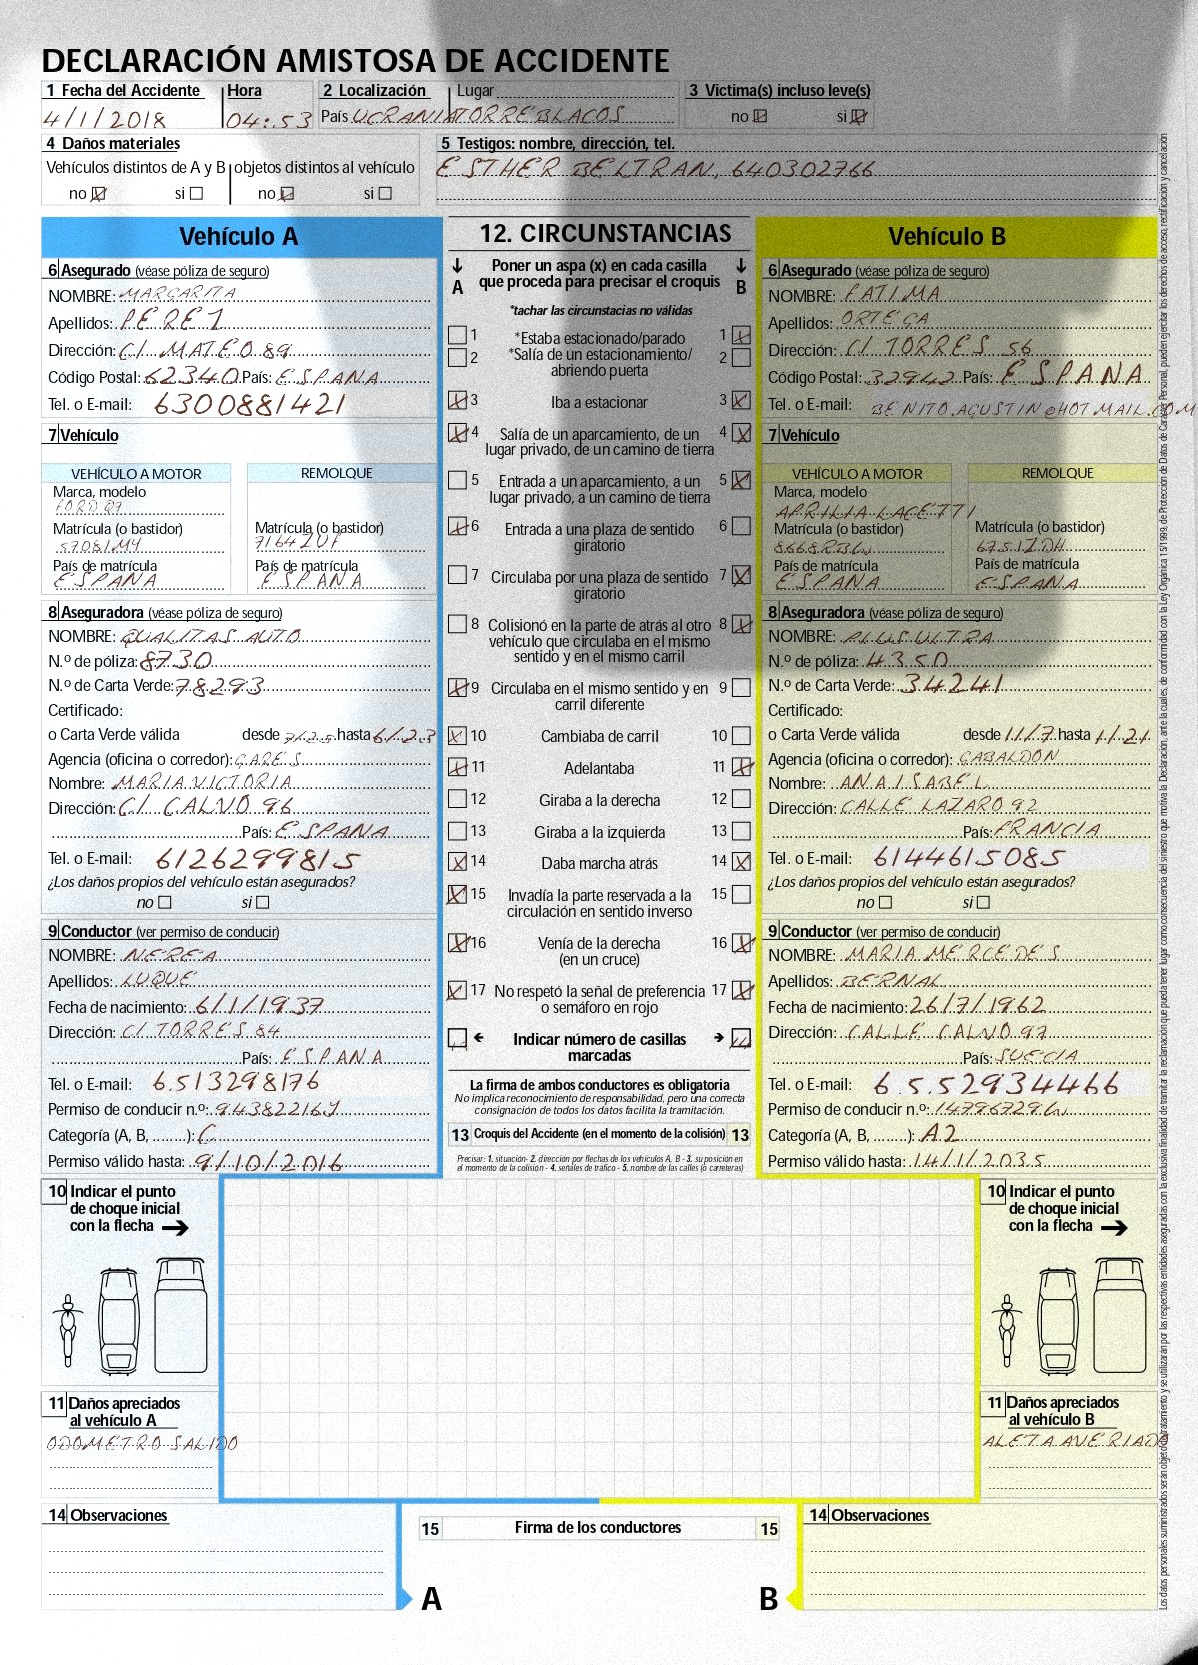 DECLARACIÓN AMISTOSA DE ACCIDENTE
1 Fecha del Accidente
4/1/2018
Hora
04:53
2 Localización
Lugar
País UCRANIA TORREBLACOS
3 Victima(s) incluso leve(s)
no si
4 Daños materiales
Vehículos distintos de A y B objetos distintos al vehículo
no si no si
5 Testigos: nombre, dirección, tel.
ESTHER BELTRAN, 640302766
Vehículo A
6 Asegurado (véase póliza de seguro)
NOMBRE: MARGARITA
Apellidos: PEREZ
Dirección: C/ MATEO 89
Código Postal: 62340 País: ESPANA
Tel. o E-mail: 6300881421
7 Vehículo
VEHÍCULO A MOTOR
Marca, modelo
FORD Q7
Matrícula (o bastidor)
País de matrícula
ESPANA
REMOLQUE
Matrícula (o bastidor)
7164ZUF
País de matrícula
ESPANA
8 Aseguradora (véase póliza de seguro)
NOMBRE: QUALITAS AUTO
N.º de póliza: 8730
N.º de Carta Verde: 78293
Certificado:
o Carta Verde válida desde 7/25 hasta 6/23
Agencia (oficina o corredor): GARES
Nombre: MARIA VICTORIA
Dirección: C/ CALVO 96
País: ESPANA
Tel. o E-mail: 6126299815
¿Los daños propios del vehículo están asegurados?
no si
9 Conductor (ver permiso de conducir)
NOMBRE: NEREA
Apellidos: LUQUE
Fecha de nacimiento: 6/1/1937
Dirección: C/ TORRES 84
País: ESPANA
Tel. o E-mail: 6.513298176
Permiso de conducir n.º: 94382216J
Categoría (A, B, ........): C
Permiso válido hasta: 9/10/2016
12. CIRCUNSTANCIAS
A
Poner un aspa (x) en cada casilla
que proceda para precisar el croquis
B
*tachar las circunstacias no válidas
1 *Estaba estacionado/parado 1
2 *Salía de un estacionamiento/
abriendo puerta 2
3 Iba a estacionar 3
4 Salía de un aparcamiento, de un
lugar privado, de un camino de tierra 4
5 Entrada a un aparcamiento, a un
lugar privado, a un camino de tierra 5
6 Entrada a una plaza de sentido
giratorio 6
7 Circulaba por una plaza de sentido
giratorio 7
8 Colisionó en la parte de atrás al otro
vehículo que circulaba en el mismo
sentido y en el mismo carril 8
9 Circulaba en el mismo sentido y en
carril diferente 9
10 Cambiaba de carril 10
11 Adelantaba 11
12 Giraba a la derecha 12
13 Giraba a la izquierda 13
14 Daba marcha atrás 14
15 Invadía la parte reservada a la
circulación en sentido inverso 15
16 Venía de la derecha
(en un cruce) 16
17 No respetó la señal de preferencia
o semáforo en rojo 17
Indicar número de casillas
marcadas
La firma de ambos conductores es obligatoria
No implica reconocimiento de responsabilidad, pero una correcta
consignación de todos los datos facilita la tramitación.
13 Croquis del Accidente (en el momento de la colisión) 13
Precisar: 1. situación- 2. dirección por flechas de los vehículos A, B - 3. su posición en
el momento de la colisión - 4. señales de tráfico - 5. nombre de las calles (o carreteras)
Vehículo B
6 Asegurado (véase póliza de seguro)
NOMBRE: FATIMA
Apellidos: ORTEGA
Dirección: C/ TORRES 56
Código Postal: 32942 País: ESPANA
Tel. o E-mail: BENITO.AGUSTIN@HOTMAIL.COM
7 Vehículo
VEHÍCULO A MOTOR
Marca, modelo
APRILIA LACETTI
Matrícula (o bastidor)
8668RBW
País de matrícula
ESPANA
REMOLQUE
Matrícula (o bastidor)
6751ZDH
País de matrícula
ESPANA
8 Aseguradora (véase póliza de seguro)
NOMBRE: PLUS ULTRA
N.º de póliza: 4350
N.º de Carta Verde: 34241
Certificado:
o Carta Verde válida desde 11/7 hasta 1/21
Agencia (oficina o corredor): GABALDON
Nombre: ANA ISABEL
Dirección: CALLE LAZARO 92
País: FRANCIA
Tel. o E-mail: 6144615085
¿Los daños propios del vehículo están asegurados?
no si
9 Conductor (ver permiso de conducir)
NOMBRE: MARIA MERCEDES
Apellidos: BERNAL
Fecha de nacimiento: 26/7/1962
Dirección: CALLE CALVO 97
País: SUECIA
Tel. o E-mail: 6.5.52934466
Permiso de conducir n.º: 14796729W
Categoría (A, B, ........): A2
Permiso válido hasta: 14/1/2035
10 Indicar el punto
de choque inicial
con la flecha
11 Daños apreciados
al vehículo A
ODOMETRO SALIDO
14 Observaciones
10 Indicar el punto
de choque inicial
con la flecha
11 Daños apreciados
al vehículo B
ALETA AVERIADA
14 Observaciones
15 Firma de los conductores 15
A B